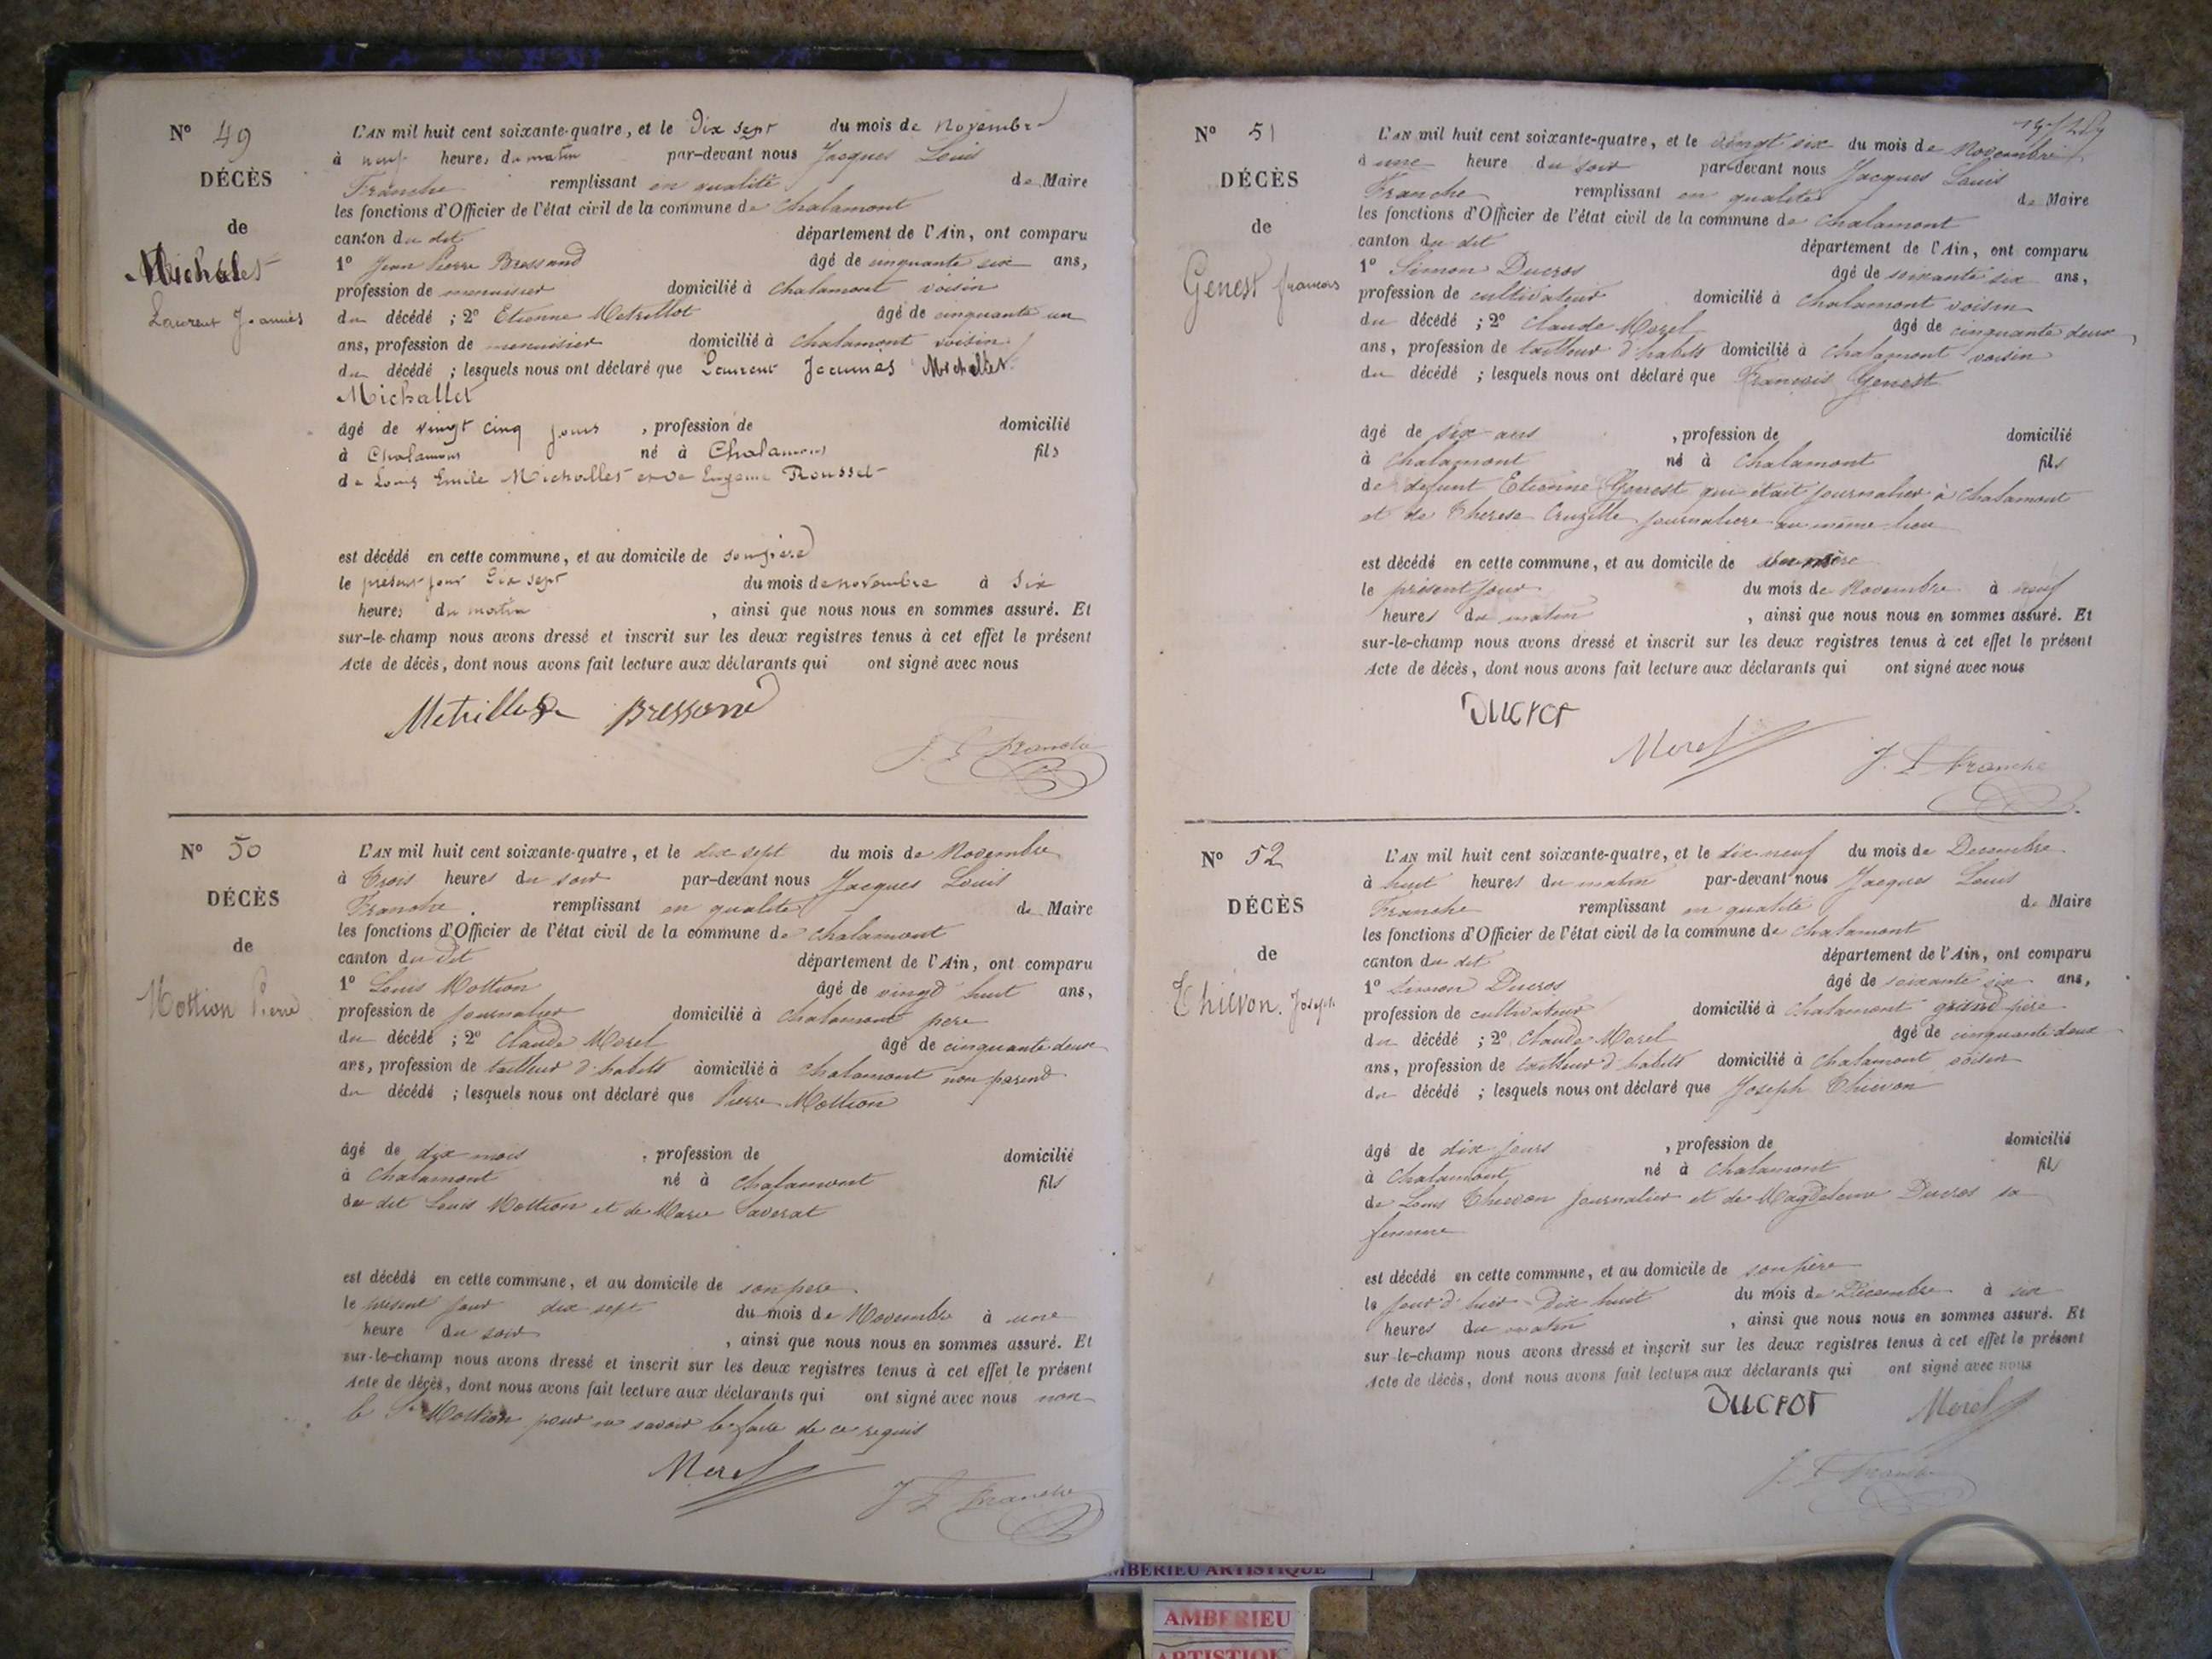 N° 49
DÉCÈS
de
Michalet
Laurent Joannès
L'AN mil huit cent soixante-quatre, et le Dix sept du mois de Novembre
à neuf heures du matin par-devant nous Jacques Louis
Franche remplissant en qualité de Maire
les fonctions d'Officier de l'état civil de la commune de Chalamont
canton du dit département de l'Ain, ont comparu
1° Jean Pierre Bressand âgé de cinquante six ans,
profession de menuisier domicilié à Chalamont voisin
du décédé ; 2° Etienne Metrillot âgé de cinquante un
ans, profession de menuisier domicilié à Chalamont voisin
du décédé ; lesquels nous ont déclaré que Laurent Joannès Michallet
Michallet
âgé de vingt cinq jours , profession de domicilié
à Chalamont né à Chalamont fils
de Louis Emile Michallet et de Eugénie Rousset
est décédé en cette commune, et au domicile de son père
le présent jour Dix sept du mois de novembre à Six
heures du matin , ainsi que nous nous en sommes assuré. Et
sur-le-champ nous avons dressé et inscrit sur les deux registres tenus à cet effet le présent
Acte de décès, dont nous avons fait lecture aux déclarants qui ont signé avec nous
Metrillot Bressand
J. L. Franche
N° 50
DÉCÈS
de
Mottion Pierre
L'AN mil huit cent soixante-quatre, et le dix sept du mois de Novembre
à Trois heures du soir par-devant nous Jacques Louis
Franche remplissant en qualité de Maire
les fonctions d'Officier de l'état civil de la commune de Chalamont
canton du dit département de l'Ain, ont comparu
1° Louis Mottion âgé de vingt huit ans,
profession de journalier domicilié à Chalamont père
du décédé ; 2° Claude Morel âgé de cinquante deux
ans, profession de tailleur d'habits domicilié à Chalamont non parent
du décédé ; lesquels nous ont déclaré que Pierre Mottion
âgé de dix mois , profession de domicilié
à Chalamont né à Chalamont fils
du dit Louis Mottion et de Marie Saverat
est décédé en cette commune, et au domicile de son père
le présent jour dix sept du mois de Novembre à une
heure du soir , ainsi que nous nous en sommes assuré. Et
sur-le-champ nous avons dressé et inscrit sur les deux registres tenus à cet effet le présent
Acte de décès, dont nous avons fait lecture aux déclarants qui ont signé avec nous non
le Sr Mottion pour ne savoir le faire de ce requis
Morel
J L Franche
N° 51
DÉCÈS
de
Genest François
L'AN mil huit cent soixante-quatre, et le vingt six du mois de Novembre
à une heure du soir par-devant nous Jacques Louis
Franche remplissant en qualité de Maire
les fonctions d'Officier de l'état civil de la commune de Chalamont
canton du dit département de l'Ain, ont comparu
1° Simon Ducros âgé de soixante six ans,
profession de cultivateur domicilié à Chalamont voisin
du décédé ; 2° Claude Morel âgé de cinquante deux
ans, profession de tailleur d'habits domicilié à Chalamont voisin
du décédé ; lesquels nous ont déclaré que François Genest
âgé de six ans , profession de domicilié
à Chalamont né à Chalamont fils
de défunt Etienne Genest qui était journalier à Chalamont
et de Therese Cruzille journaliere au même lieu
est décédé en cette commune, et au domicile de mère
le présent jour du mois de Novembre à neuf
heures du matin , ainsi que nous nous en sommes assuré. Et
sur-le-champ nous avons dressé et inscrit sur les deux registres tenus à cet effet le présent
Acte de décès, dont nous avons fait lecture aux déclarants qui ont signé avec nous
Ducrot
Morel J. L Franche
N° 52
DÉCÈS
de
Thievon. Joseph
L'AN mil huit cent soixante-quatre, et le dix neuf du mois de Decembre
à huit heures du matin par-devant nous Jacques Louis
Franche remplissant en qualité de Maire
les fonctions d'Officier de l'état civil de la commune de Chalamont
canton du dit département de l'Ain, ont comparu
1° Simon Ducros âgé de soixante six ans,
profession de cultivateur domicilié à Chalamont grand père
du décédé ; 2° Claude Morel âgé de cinquante deux
ans, profession de tailleur d'habits domicilié à Chalamont voisin
du décédé ; lesquels nous ont déclaré que Joseph Thievon
âgé de dix jours , profession de domicilié
à Chalamont né à Chalamont fils
de Louis Thievon journalier et de Magdeleine Ducros sa
femme
est décédé en cette commune, et au domicile de son père
le jour d'hier Dix huit du mois de Décembre à six
heures du matin , ainsi que nous nous en sommes assuré. Et
sur-le-champ nous avons dressé et inscrit sur les deux registres tenus à cet effet le présent
Acte de décès, dont nous avons fait lecture aux déclarants qui ont signé avec nous
Ducrot Morel
J. L Franche
AMBERIEU ARTISTIQUE
AMBERIEU
ARTISTIQUE